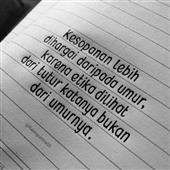 kesopanan lebih
dihargai daripada umur,
karena etika dilihat
dari tutur katanya bukan
dari umurnya.